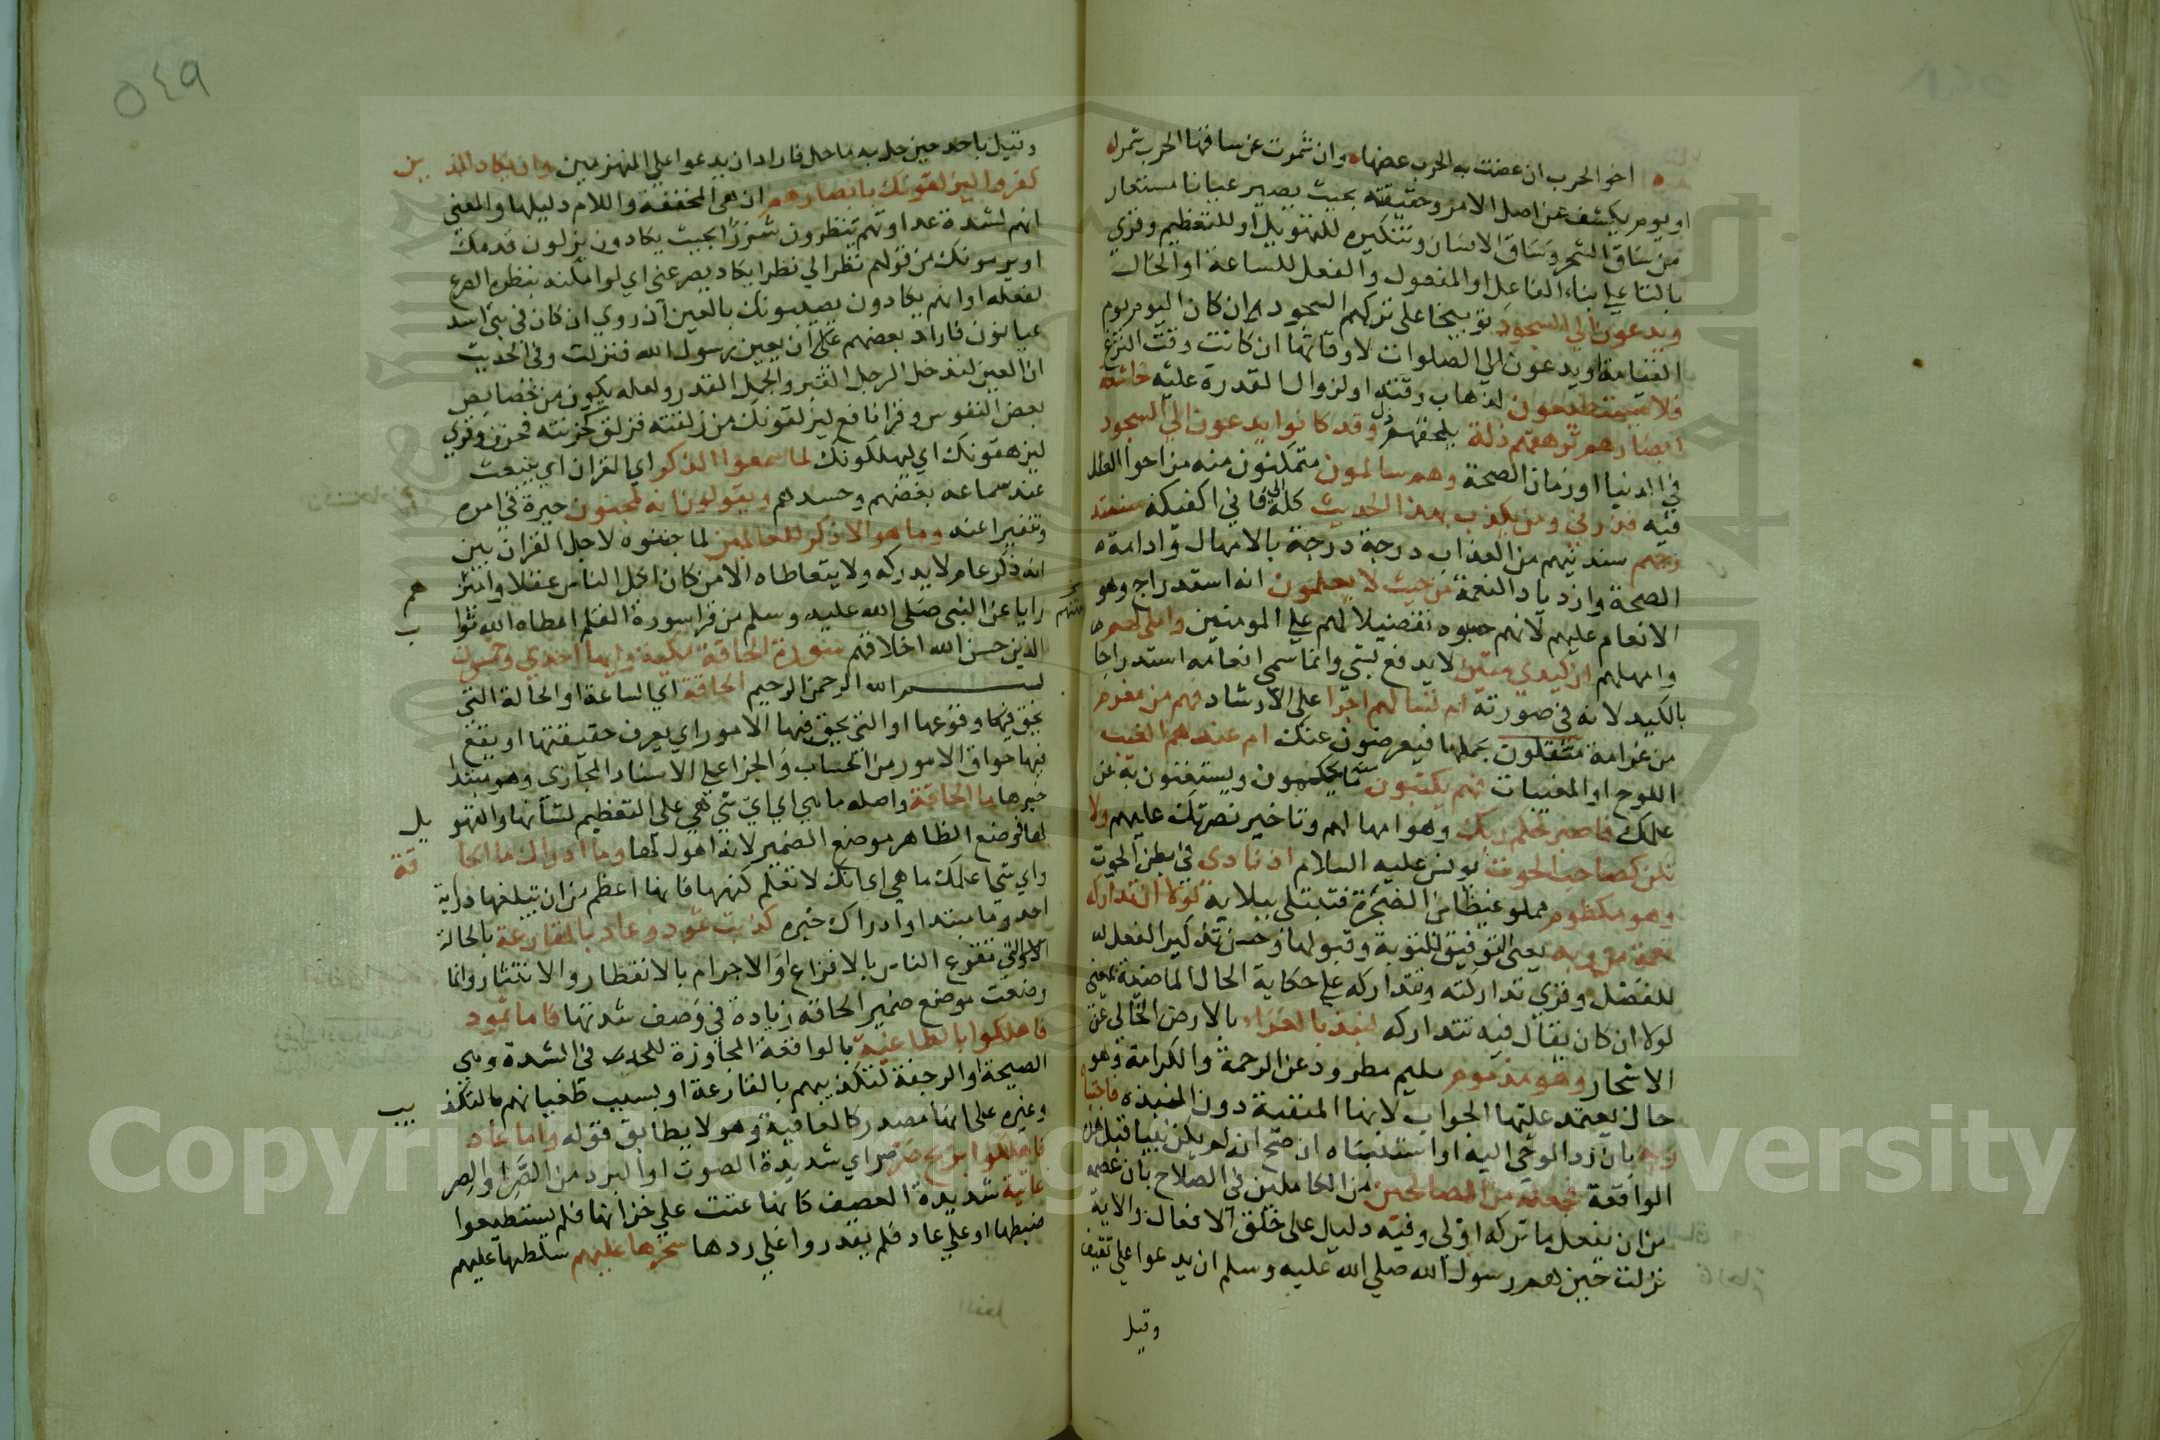 اخو الحرب ان عضت به الحرب عضها وان شمرت عن ساقها الحرب شمرا
او يوم يكشف عن اصل الامر وحقيقته بحيث يصير عيانا مستعار
من ساق الشجر وساق الانسان وتنكيره للتهويل او للتعظيم وقري
بالتا علي بناء الفاعل او المفعول والفعل للساعة او الحال
ويدعون الي السجود توبيخا على تركهم السجود ان كان اليوم يوم
القيامة او يدعون الي الصلوات لاوقاتها ان كانت وقت النزع
فلا يستطيعون لذهاب وقته او لزوال القدرة عليه خاشعة
ابصارهم ترهقهم ذلة يلحقهم ذل وقد كانوا يدعون الي السجود
في الدنيا او زمان الصحة وهم سالمون متمكنون منه مزاحوا العلل
فيه فذرني ومن يكذب بهذا الحديث كله الي فاني اكفيكه سنستد
رجهم سندنيهم من العذاب درجة درجة بالامهال وادامة
الصحة وازدياد النعمة من حيث لا يعلمون انه استدراج وهو
الانعام عليهم لانهم حسبوه تفضيلا لهم علي المومنين واملي لهم
وامهلهم ان كيدي متين لا يدفع بشي وانما سمي انعامه استدراجا
بالكيد لانه في صورته ام تسالهم اجرا علي الارشاد فهم من مغرم
من غرامة مثقلون بحملها فيعرضون عنك ام عندهم الغيب
اللوح او المغيبات فهم يكتبون منه ما يحكمون ويستغنون به عن
علمك فاصبر لحكم ربك وهو امهالهم وتاخير نصرتك عليهم ولا
تكن كصاحب الحوت يونس عليه السلام اذ نادى في بطن الحوت
وهو مكظوم مملو غيظا من الضجرة فتبتلي ببلايه لولا ان تداركه
نعمة من ربه يعني التوفيق للتوبة وقبولها وحسن تذكير الفعل
للفصل وقري تداركته وتتداركه علي حكاية الحال الماضية بمعني
لولا ان كان يقال فيه تتداركه لنبذ بالعراء بالارض الخالي عن
الاشجار وهو مذموم مليم مطرود عن الرحمة والكرامة وهو
حال يعتمد عليها الجواب لانها المنفية دون النبذ فاجتباه
ربه بان رد الوحي اليه او استنبئاه ان صح انه لم يكن نبيا قبل هذه
الواقعة فجعله من الصالحين من الكاملين في الصلاح بان عصمه
من ان يفعل ما تركه اولى وفيه دليل على خلق الافعال والاية
نزلت حين هم رسول الله صلي الله عليه وسلم ان يدعوا علي ثقيف
وقيل
٥٤٩
وقيل باحد حين حل به ما حل فاراد ان يدعوا علي المنهزمين وان يكاد الذين
كفروا ليزلقونك بابصارهم ان هي المخففة واللام دليلها والمعني
انهم لشدة عداوتهم ينظرون شزرا بحيث يكادون يزلون قدمك
او يرمونك من قولهم نظر الي نظرا يكاد يصرعني اي لو امكنه بنظره الصرع
لفعله او انهم يكادون يصيبونك بالعين اذ روي ان كان في بني اسد
عيانون فاراد بعضهم على ان يعين رسول الله فنزلت وفي الحديث
ان العين لتدخل الرجل القبر والجمل القدر ولعله يكون من خصائص
بعض النفوس وقرا نافع ليزلقونك من زلقته فزلق كحزنته فحزن وقري
ليزهقونك اي ليهلكونك لما سمعوا الذكر اي القران اي ينبعث
عند سماعه بغضهم وحسدهم ويقولون انه لمجنون حيرة في امره
وتنفيرا عنه وما هو الا ذكر للعالمين لما جننوه لاجل القران بين
انه ذكر عام لا يدركه ولا يتعاطاه الا من كان اكمل الناس عقلا وامتنهم
رايا عن النبي صلى الله عليه وسلم من قرا سورة القلم اعطاه الله ثواب
الذين حسن الله اخلاقهم سورة الحاقة مكية وايها احدي وخمسون
بسم الله الرحمن الرحيم الحاقة اي الساعة او الحالة التي
يحق فيها وقوعها او التي يحق فيها الامور اي يعرف حقيقتها او يقع
فيها حواق الامور من الحساب والجزا علي الاسناد المجازي وهو مبتدا
خبرها ما الحاقة واصله ما هي اي اي شي هي علي التعظيم لشانها والتهويل
لها فوضع الظاهر موضع الضمير لانه اهول لها وما ادراك ما الحاقة
واي شي اعلمك ما هي اي انك لا تعلم كنهها فانها اعظم من ان تبلغها دراية
احد وما مبتدا وادراك خبره كذبت ثمود وعاد بالقارعة بالحالة
التي تقرع الناس بالافزاع والاجرام بالانفطار والانتثار وانما
وضعت موضع ضمير الحاقة زيادة في وصف شدتها فاما ثمود
فاهلكوا بالطاغية بالواقعة المجاوزة للحد في الشدة وهي
الصيحة او الرجفة لتكذيبهم بالقارعة او بسبب طغيانهم بالتكذيب
وغيره على انها مصدر كالعافية وهو لا يطابق قوله واما عاد
فاهلكوا بريح صرصر اي شديدة الصوت او البرد من الصر او الصر
عاتية شديدة العصف كانها عتت علي خزانها فلم يستطيعوا
ضبطها او علي عاد فلم يقدروا علي ردها سخرها عليهم سلطها عليهم
Copyright © King Saud University